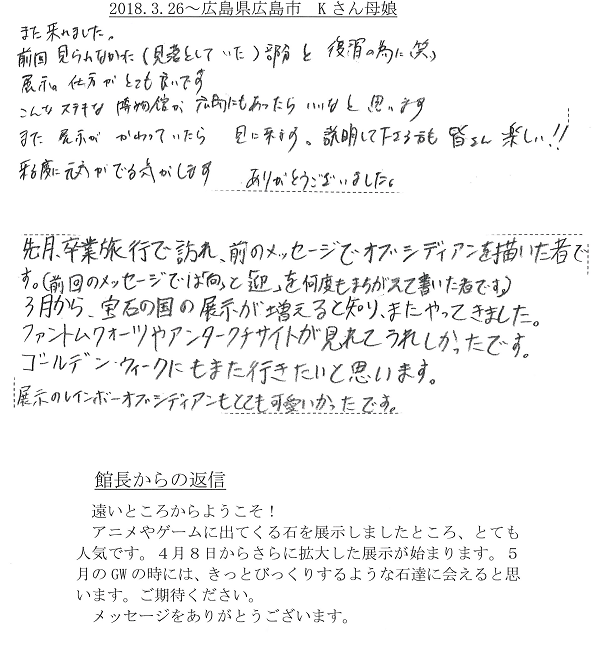 2018.3.26～広島県広島市　Kさん母娘
また来れました。
前回見られなかた(見落としていた)部分と 復習の為に(笑)
展示の仕方がとても良いです
こんなステキな博物館が広島にもあったらいいなと思います
また展示がかわっていたら見に来ます。説明して下さる方も皆さん楽しい!!
来る度に元気がでる気がします　ありがとうございました。
先月、卒業旅行で訪れ、前のメッセージでオブシディアンを描いた者で
す。(前回のメッセージでは「向」と「迎」を何度もまちがえて書いた者です。)
3月から、宝石の国の展示が増えると知り、またやってきました。
ファントムクォーツやアンタークチサイトが見れてうれしかったです。
ゴールデン・ウィークにもまた行きたいと思います。
展示のレインボーオブシディアンもとても可愛いかったです。
館長からの返信
遠いところからようこそ！
アニメやゲームに出てくる石を展示しましたところ、とても
人気です。４月８日からさらに拡大した展示が始まります。５
月のGWの時には、きっとびっくりするような石達に会えると思
います。ご期待ください。
メッセージをありがとうございます。